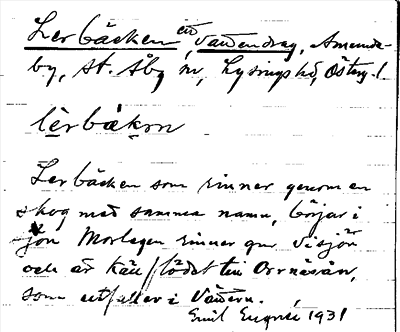 Lerbäcken ett vattendrag, Amunde-
by, St. Åby sn, Lysings hd, Österg. l.
lèrbäkən
Lerbäcken som rinner genom en
skog med samma namn, börjar i
sjön Morlagen rinner gm Visjön
och är källflödet till Orrnäsån,
som utfaller i Vättern.
Emil 1931